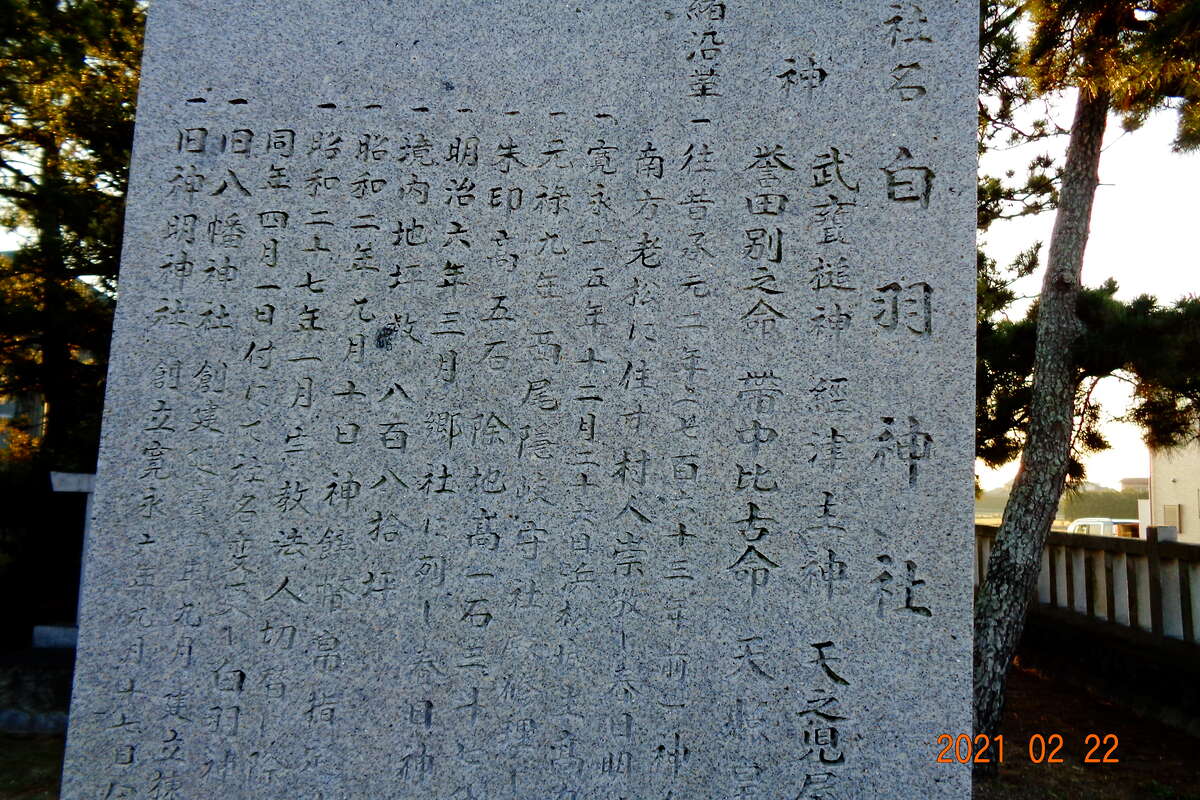 社名 白羽神社
神 武甕槌神 經津主神 天之児屋
誉田別之命 帶中比古命 天照
緒沿革 一往昔承元二年 百六十三年前 神
南方老松に住す村人宗敬し春日明
一寛永十五年十二月二十六日浜松城主高
一元禄九年西尾隠岐守社 修理
一朱印高五石 除地高一石三十七
一明治六年三月 郷社に列し春日神
一境内地坪数 八百八拾坪
一昭和二年元月十日 神饌幣帛指定
一昭和二十七年一月宗教法人切替
同年四月一日付にて社名変 白羽神
一旧八幡神社 創建 年九月建立
一旧神明神社 創立寛永二年九月十七日
2021 02 22